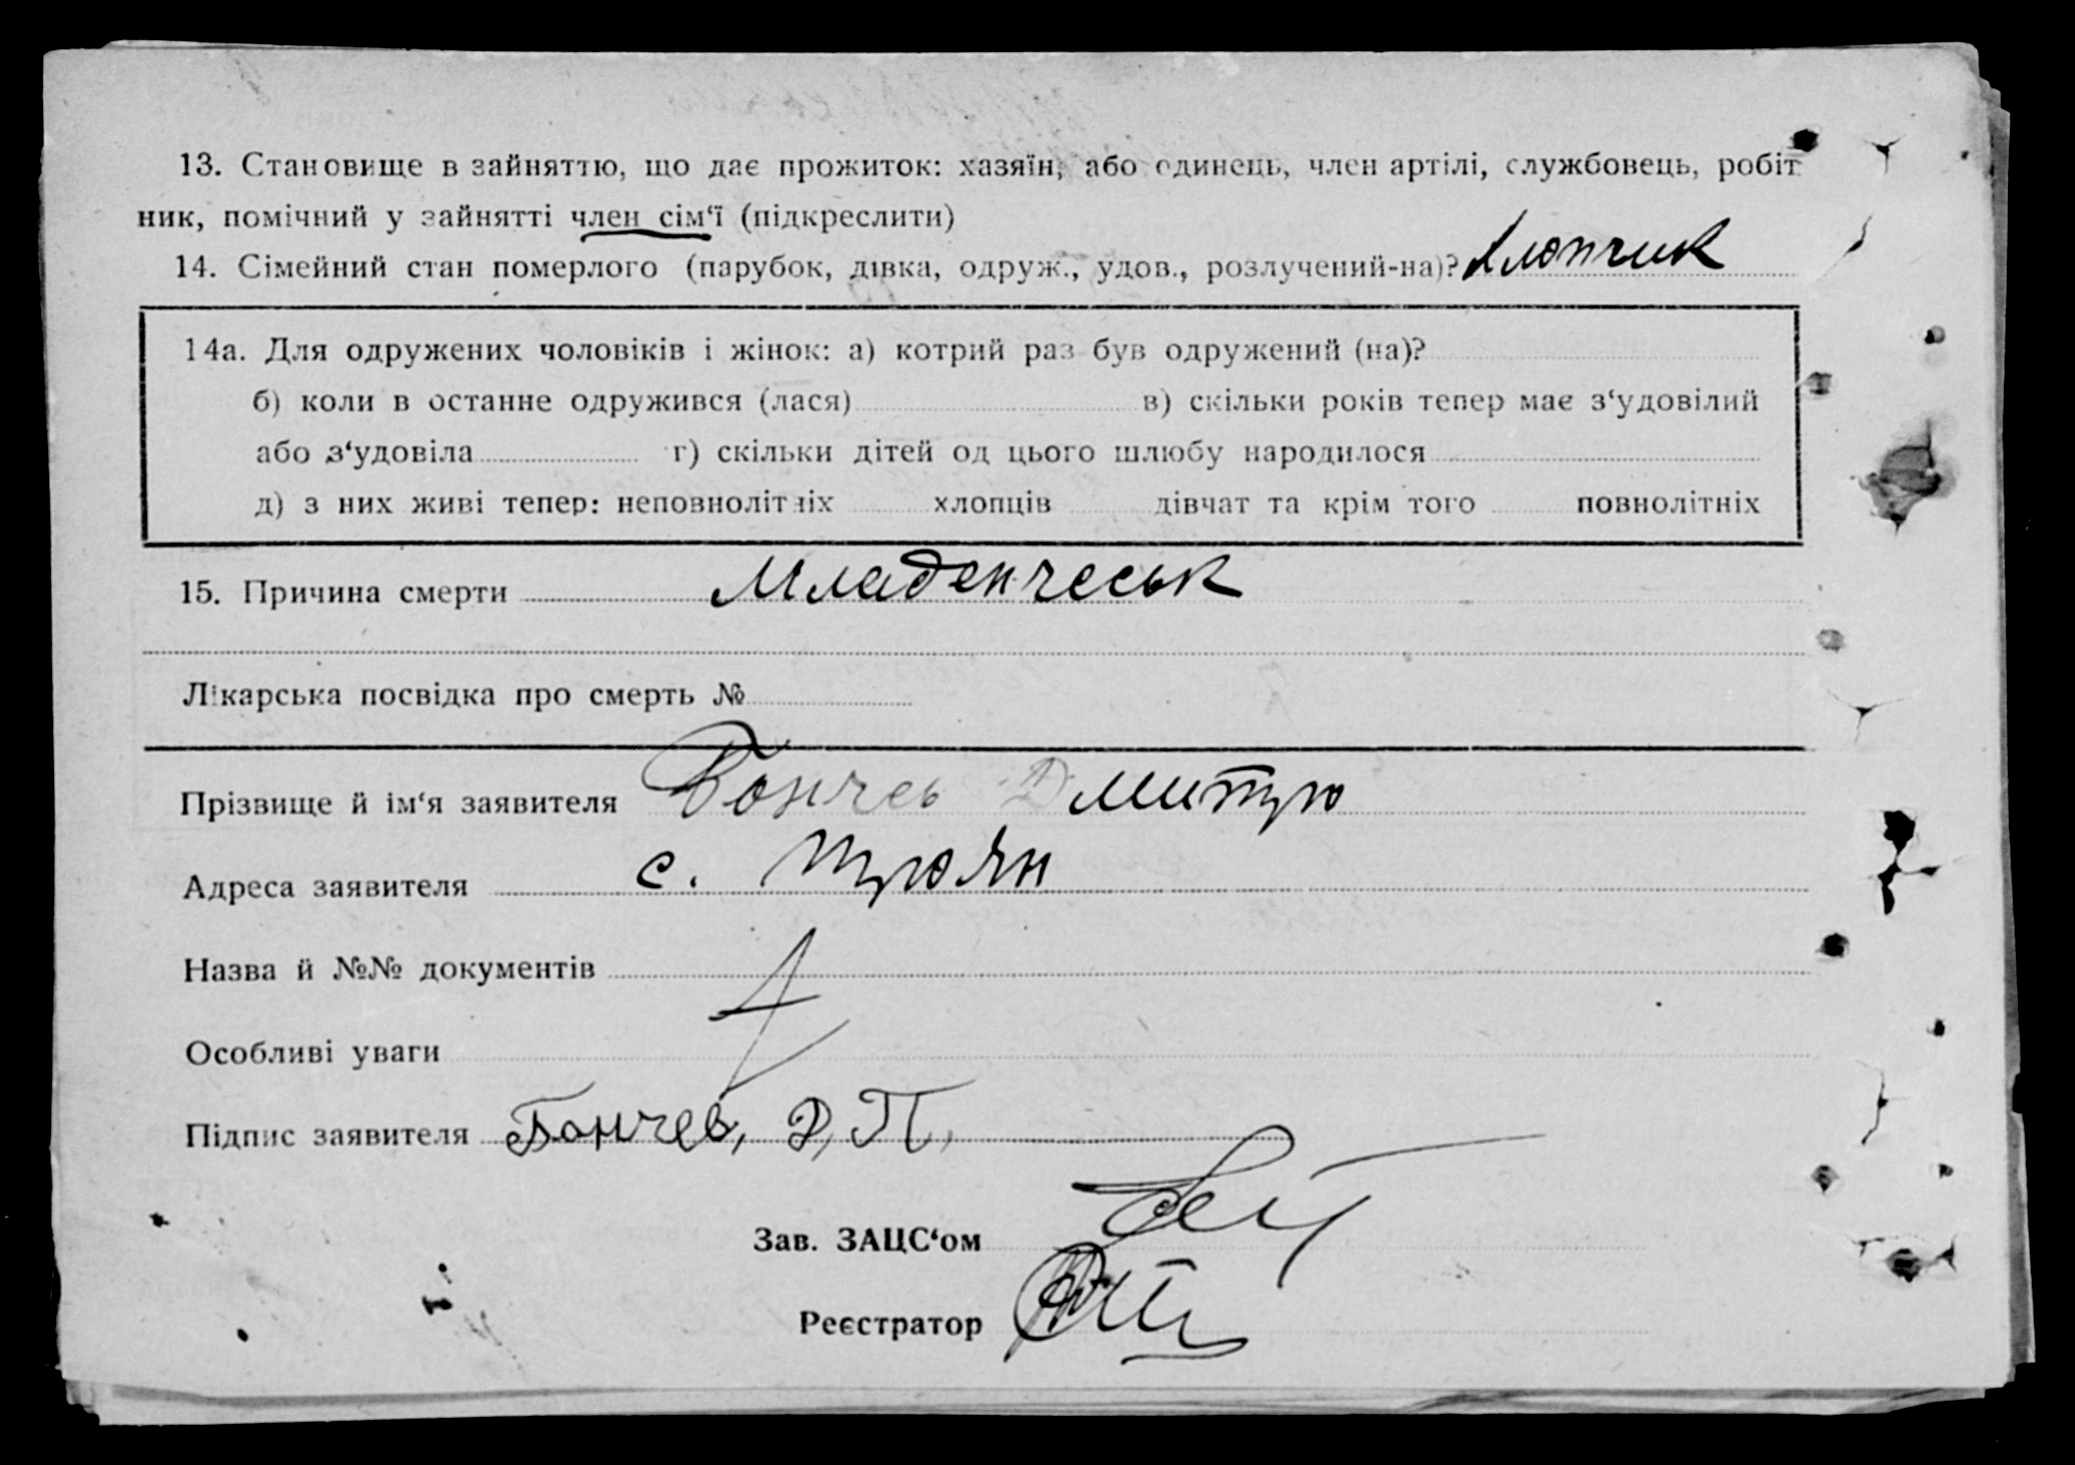 13. Становище в зайняттю, що дає прожиток: хазяїн, або одинець, член артілі, службовець, робіт
ник, помічний у зайнятті член сім‘ї (підкреслити)
14. Сімейний стан померлого (парубок, дівка, одруж., удов., розлучений-на)? хлопчик
14а. Для одружених чоловіків і жінок: а) котрий раз був одружений (на)?
б) коли в останне одружився (лася) в) скільки років тепер має з‘удовілий
або з‘удовіла г) скільки дітей од цього шлюбу народилося
д) з них живі тепер: неповнолітніх хлопців дівчат та крім того повнолітніх
15. Причина смерти Младенческ
Лікарська посвідка про смерть №
Прізвище й ім‘я заявителя Бончев Дмитро
Адреса заявителя с. Троян
Назва й №№ документів
Особливі уваги
Підпис заявителя Бончев, Д, П,
Зав. ЗАЦС‘ом
Реєстратор